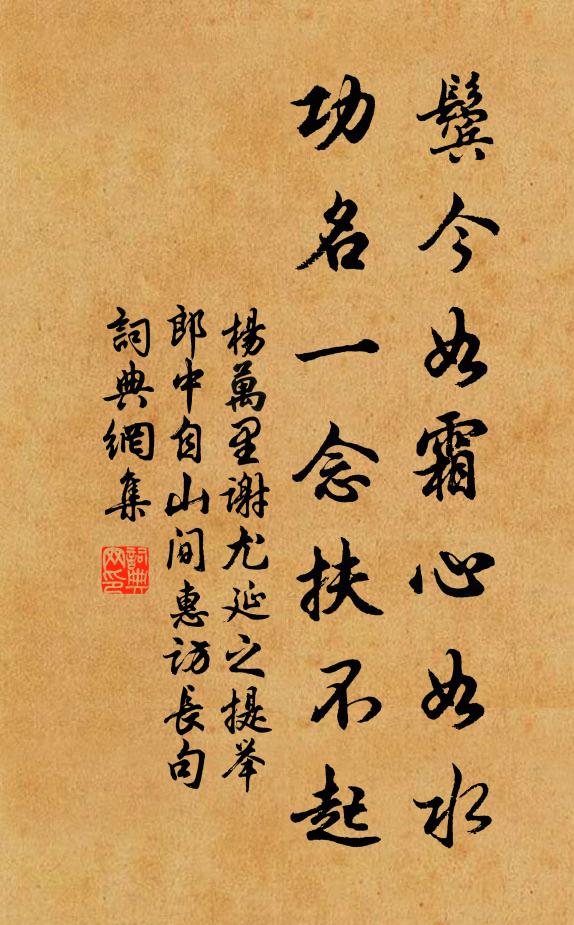 鬓今如霜心如水
功名一念扶不起
楊萬里谢尤延之提举
郎中自山间惠訪長句
詞典網集
詞典网印